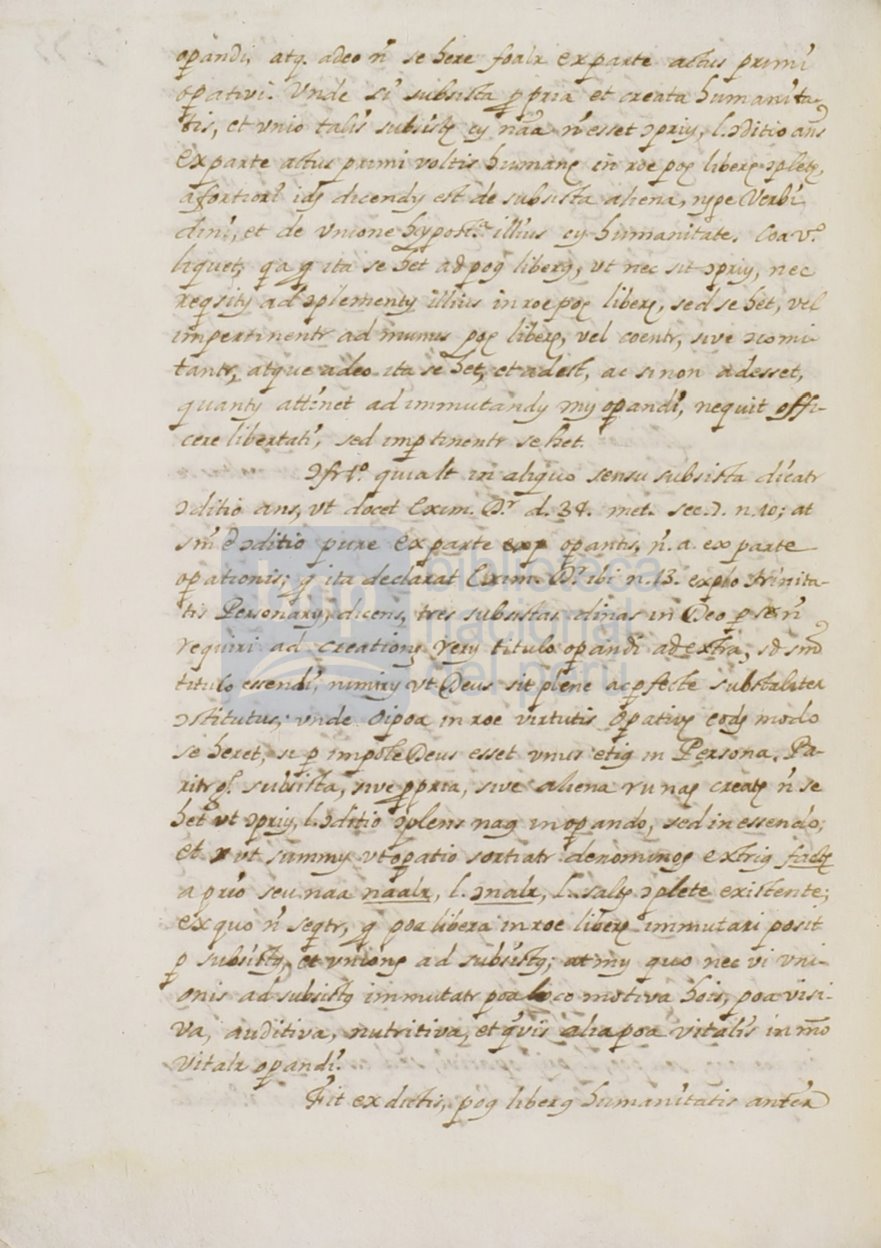 opandi, atq. adeo ñ se here foalr ex parte actus primi
opativi. Unde si subsista ppria et creata humanita-
tis, et unio talis subsistę cų nãa ñ esset ɔprių, l. ɔditio ans
ex parte actus primi voltis humanę in roe poę liberę ɔpletę,
a fortiori idę dicendų est de subsista aliena, nųpe Verbi
dini, et de unione hypost.ce illius cų humanitate. Coa v.º
liquet, qa q ita se het ad poą liberą, ut nec sit ɔprių, nec
reqsitų ad ɔplementų illius in roe poę liberę, sed se het, vel
impertinentr ad munus poę liberę, vel coentr, sive ɔcomi-
tantr, atque adeo ita se het, et adest, ac si non adesset,
quantų attinet ad immutandų mų opandi, nequit offi-
cere libertati, sed imptinentr se het.
ɔfr 1º quia lt in aliquo sensu subsista dicatr
ɔditio ans, ut docet Exim. Dr. d. 34. met. sec. 7. n. 10; at
sm̃ ɔditio pure ex parte opantis, ñ. a. ex parte
opationis; q ita declarat Exim. Dr. ibi n. 13. explo trinita-
tis Personarų, dicens, tres subsistas dinas in Deo p se ñ
requiri ad creationę rerų titulo opandi ad extra, sd sm̃
titulo essendi, nimirų ut Deus sit plene ac pfecte substalitea
ɔstitutus; unde oipoa in roe virtutis opativę eodę modo
se heret, si p impole Deus esset unus etią in Persona. Pa-
ritr q.l subsista, sive ppria, sive aliena rų naę creatę ñ se
het ut ɔprių, l. ɔditio ɔplens naą in opando, sed in essendo;
et ut summų ut opatio sortiatr denominoę extrią factę
a prio seu naa naalr, l. ɔnalr, l. saltę ɔplete existente;
ex quo ñ seqtr, q poa libera in roe liberę immutari posit
p subsistą, et unionę ad subsistą; at mų quo nec vi uni-
onis ad subsistą immutatr poa locomotiva hois, poa visi-
va, auditiva, nutritiva, et qvis alia poa vitalis in mõ
vitalr opandi.
Fit ex dictis, poą liberą humanitatis anter
biblioteca
nacional
del perú